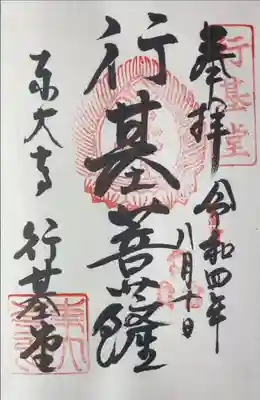 行基堂
奉拝 令和四年
八月十日
行基菩薩
東大寺 行基堂